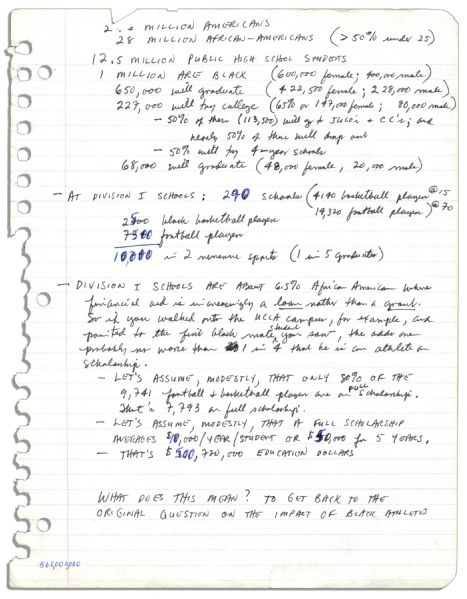 MILLION AMERICANS
28 MILLION AFRICAN-AMERICANS (> 50% under 25)
12.5 MILLION PUBLIC HIGH SCHOOL STUDENTS
1 MILLION ARE BLACK (600,000 female; 400,000 male)
650,000 will graduate (422,500 female; 228,000 male)
227,000 will try college (65% or 147,000 female, 80,000 male)
- 50% of these (113,500) will go to JUCO's & CC's; and
nearly 50% of these will drop out
- 50% will try 4-year schools
68,000 will graduate (48,000 female, 20,000 male)
- AT DIVISION I SCHOOLS: 290 schools (4140 basketball players @ 15
19,320 football players) @ 70
2500 black basketball players
football players
in 2 revenue sports (1 in 5 graduates)
- DIVISION I SCHOOLS ARE ABOUT 6.5% African American where
financial aid is increasingly a loan rather than a grant.
So if you walked onto the UCLA campus, for example, and
pointed to the first black male student you saw, the odds are
probably no worse than 1 in 4 that he is an athlete on
scholarship.
- LET'S ASSUME, MODESTLY, THAT ONLY 80% OF THE
9,741 football & basketball players are on full scholarship.
That's 7,793 on full scholarship.
- LET'S ASSUME, MODESTLY, THAT A FULL SCHOLARSHIP
AVERAGES $10,000/YEAR/STUDENT OR $50,000 for 5 YEARS.
- THAT'S EDUCATION DOLLARS
WHAT DOES THIS MEAN? TO GET BACK TO THE
ORIGINAL QUESTION ON THE IMPACT OF BLACK ATHLETES